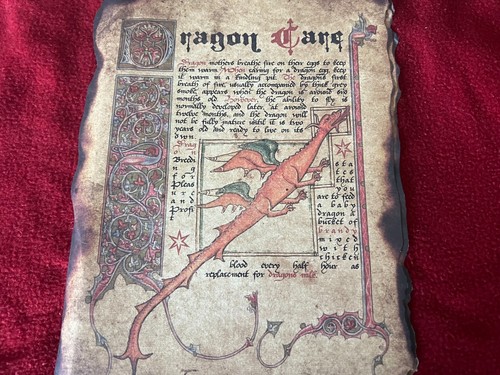 Dragon Care
Dragon mothers breathe fire on their eggs to keep
them warm. When caring for a dragon egg, keep
it warm in a kindling pit. The dragons first
breath of fire, usually accompanied by thick grey
smoke, appears when the dragon is around six
months old. However, the ability to fly is
normally developed later, at around
twelve months, and the dragon will
not be fully mature until it is two
years old and ready to live on its
own.
Drag
on
Breedin
g
for
Pleas
ure
and
Profi
t
s
tates
that
you
are to feed
a baby
dragon a
bucket of
brandy
mixed
with
chicken
blood every half hour as
replacement for dragons milk.